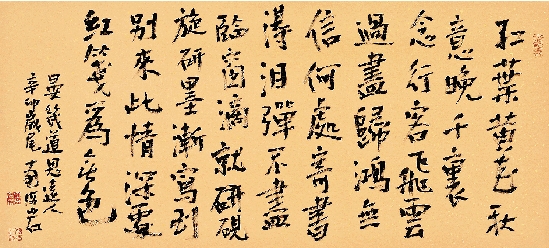 红葉黄花秋
意晚千裏
念行客飛雲
過盡歸鴻無
信何處寄書
得泪彈不盡
臨窗滴就研硯
旋研墨漸寫到
別來此情深處
紅箋爲無色
晏幾道思遠人
辛卯歲尾